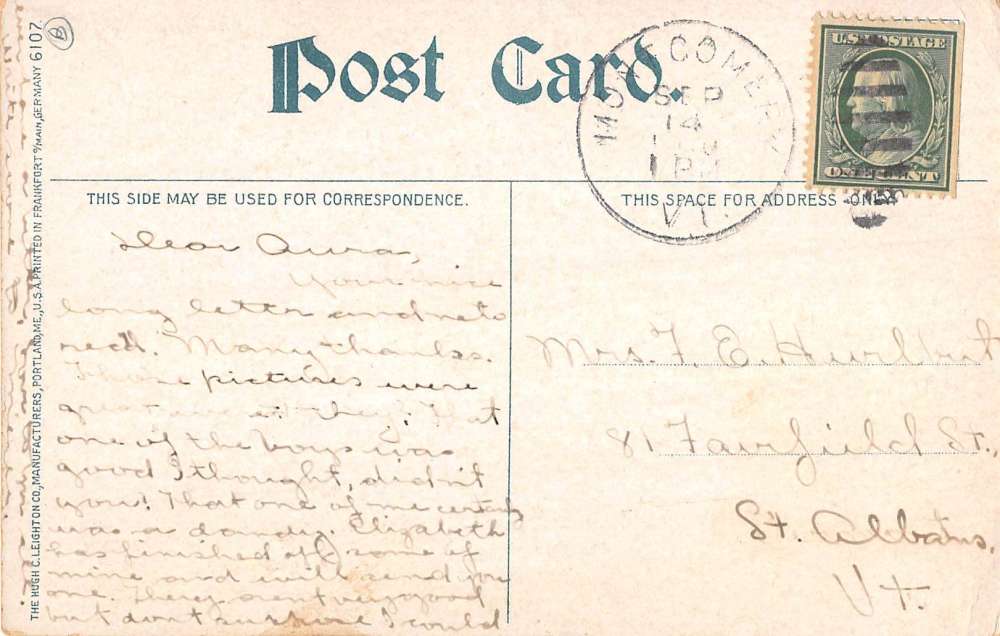 6107
Post Card.
MONTGOMERY
SEP
14
1 PM
VT.
U.S. POSTAGE
ONE CENT
THIS SIDE MAY BE USED FOR CORRESPONDENCE.
THIS SPACE FOR ADDRESS ONLY.
THE HUGH C. LEIGHTON CO., MANUFACTURERS, PORTLAND, ME., U.S.A. PRINTED IN FRANKFORT o/MAIN, GERMANY
Dear Aura,
Your nice
long letter and
rec'd. Many thanks.
Those pictures were
great they? That
one of the boys was
good I thought, didn't
you? That one of me certainly
was a dandy. Elizabeth
has finished off some of
mine and will send you
one. They aren't very good
but don't I could
Mrs. F. E. Hurlbut
81 Fairfield St.,
St. Albans,
Vt.